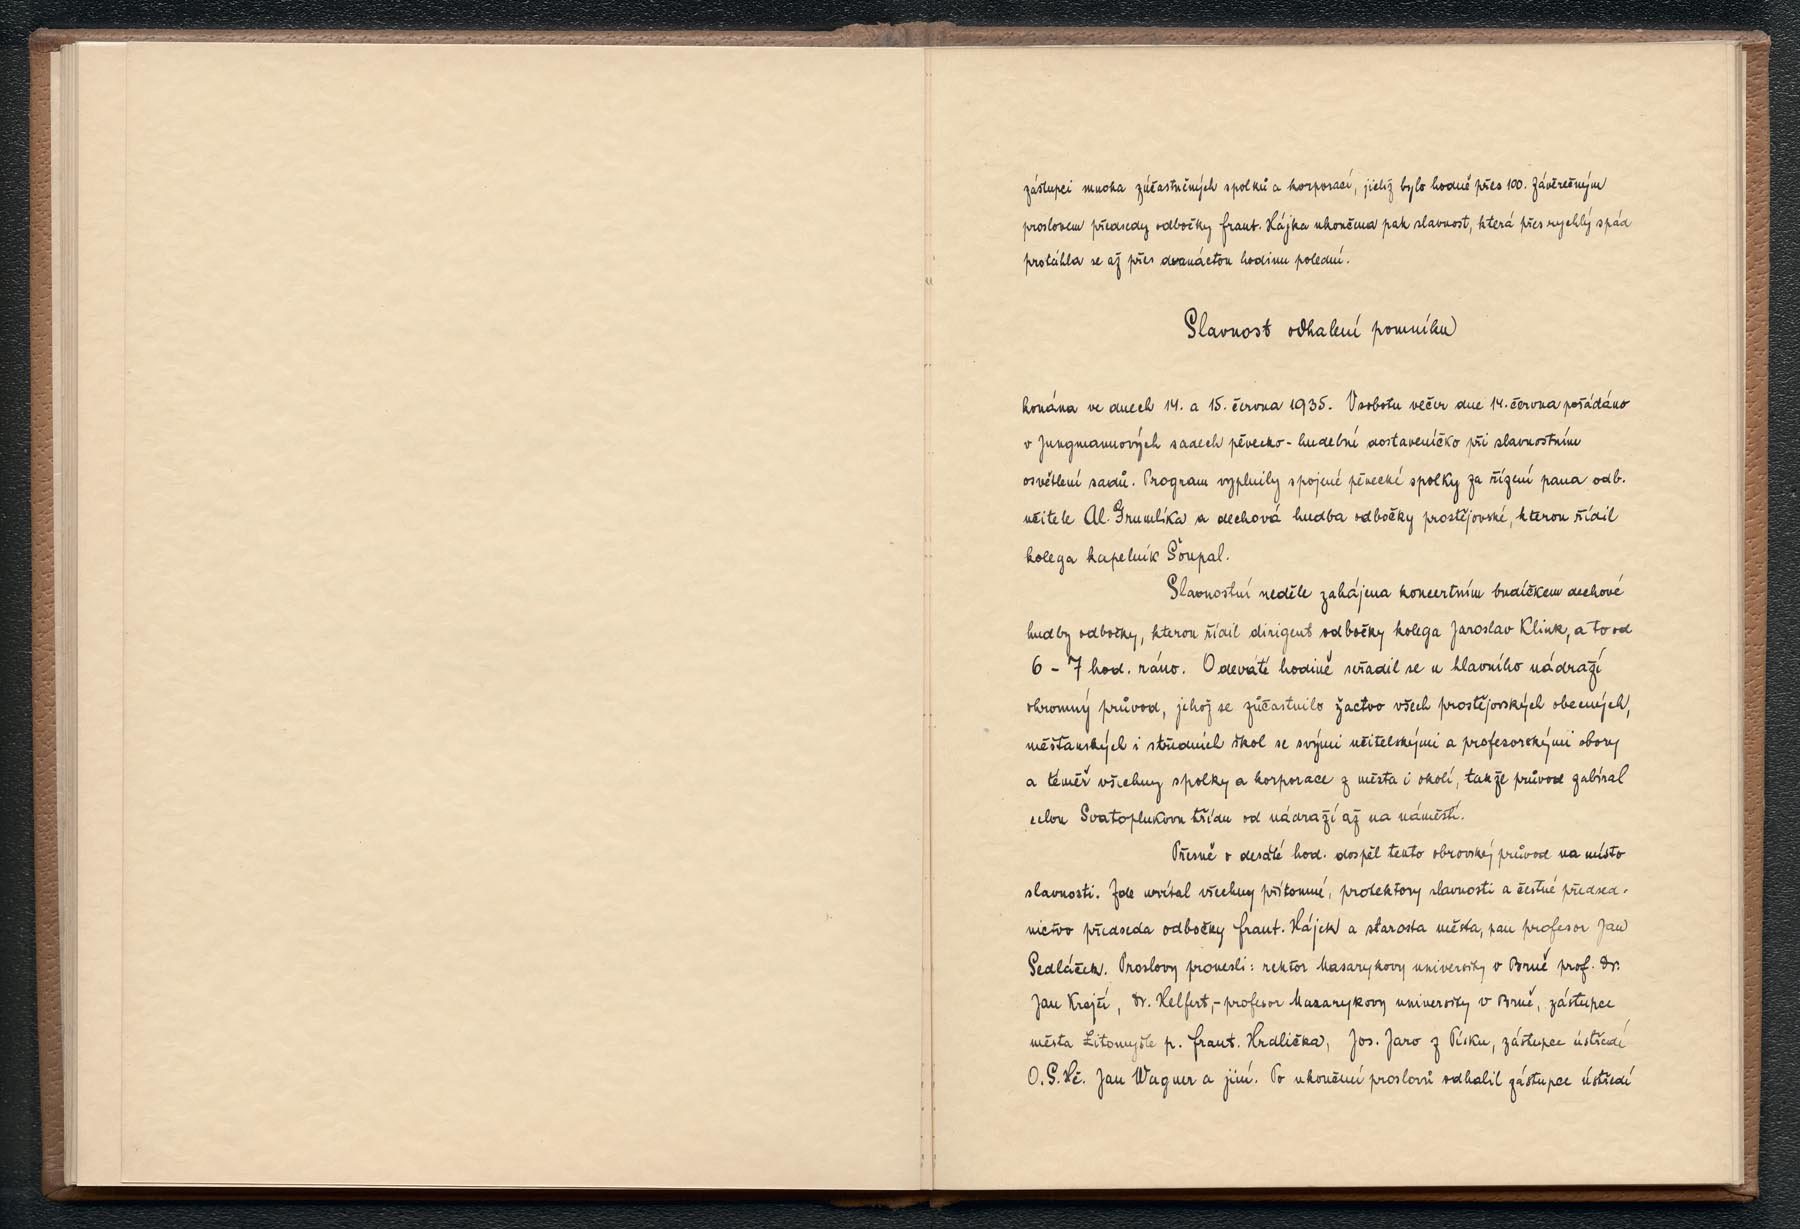 zástupci mnoha zúčastněných spolků a korporací, jichž bylo hodně přes 100. Závěrečným
proslovem předsedy odbočky frant. Hájka ukončena pak slavnost, která přes rychlý spád
protáhla se až přes dvanáctou hodinu polední.
Slavnost odhalení pomníku
konána ve dnech 14. a 15. června 1935. V sobotu večer dne 14. června pořádáno
v Jungmannových sadech pěvecko-hudební dostaveníčko při slavnostním
osvětlení sadů. Program vyplnily spojené pěvecké spolky za řízení pana odb.
učitele Al. Grumlíka a dechová hudba odbočky prostějovské, kterou řídil
kolega kapelník Šoupal.
Slavnostní neděle zahájena koncertním budíčkem dechové
hudby odbočky, kterou řídil dirigent odbočky kolega Jaroslav Klink, a to od
6 – 7 hod. ráno. O deváté hodině seřadil se u hlavního nádraží
ohromný průvod, jehož se zúčastnilo žactvo všech prostějovských obecných,
měšťanských i středních škol se svými učitelskými a profesorskými sbory
a téměř všechny spolky a korporace z města i okolí, takže průvod zabíral
celou Svatoplukovu třídu od nádraží až na náměstí.
Přesně o desáté hod. dospěl tento obrovský průvod na místo
slavnosti. Zde uvítal všechny přítomné, protektory slavnosti a čestné předsed-
nictvo předseda odbočky frant. Hájek a starosta města, pan profesor Jan
Sedláček. Proslovy pronesli: rektor Masarykovy university v Brně prof. Dr.
Jan Krejčí, Dr. Helfert,- profesor Masarykovy university v Brně, zástupce
města Litomyšle p. frant. Hrdlička, Jos. Jaro z Písku, zástupce ústředí
O.S.Hč. Jan Wagner a jiní. Po ukončení proslovů odhalil zástupce ústředí